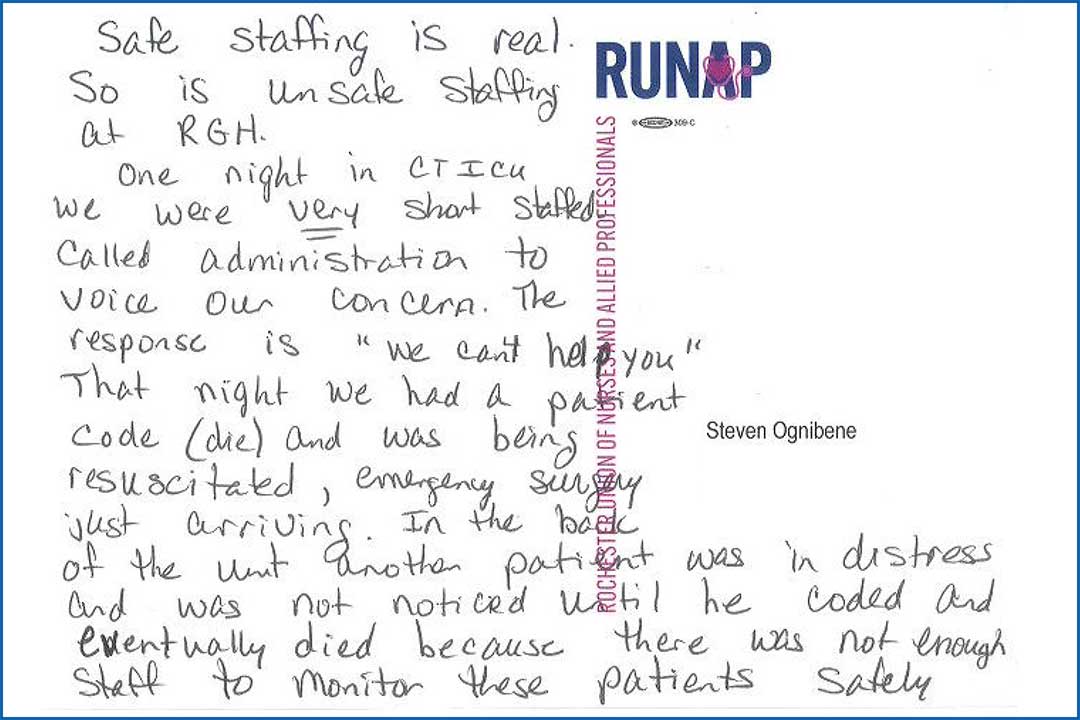 Safe staffing is real.
So is unsafe staffing
at RGH.
One night in CTICU
we were very short staffed
Called administration to
voice our concern. The
response is "we can't help you"
That night we had a patient
code (die) and was being
resuscitated, emergency surgery
just arriving. In the back
of the unit another patient was in distress
and was not noticed until he coded and
eventually died because there was not enough
staff to monitor these patients safely
RUNAP
309-C
ROCHESTER UNION OF NURSES AND ALLIED PROFESSIONALS
Steven Ognibene